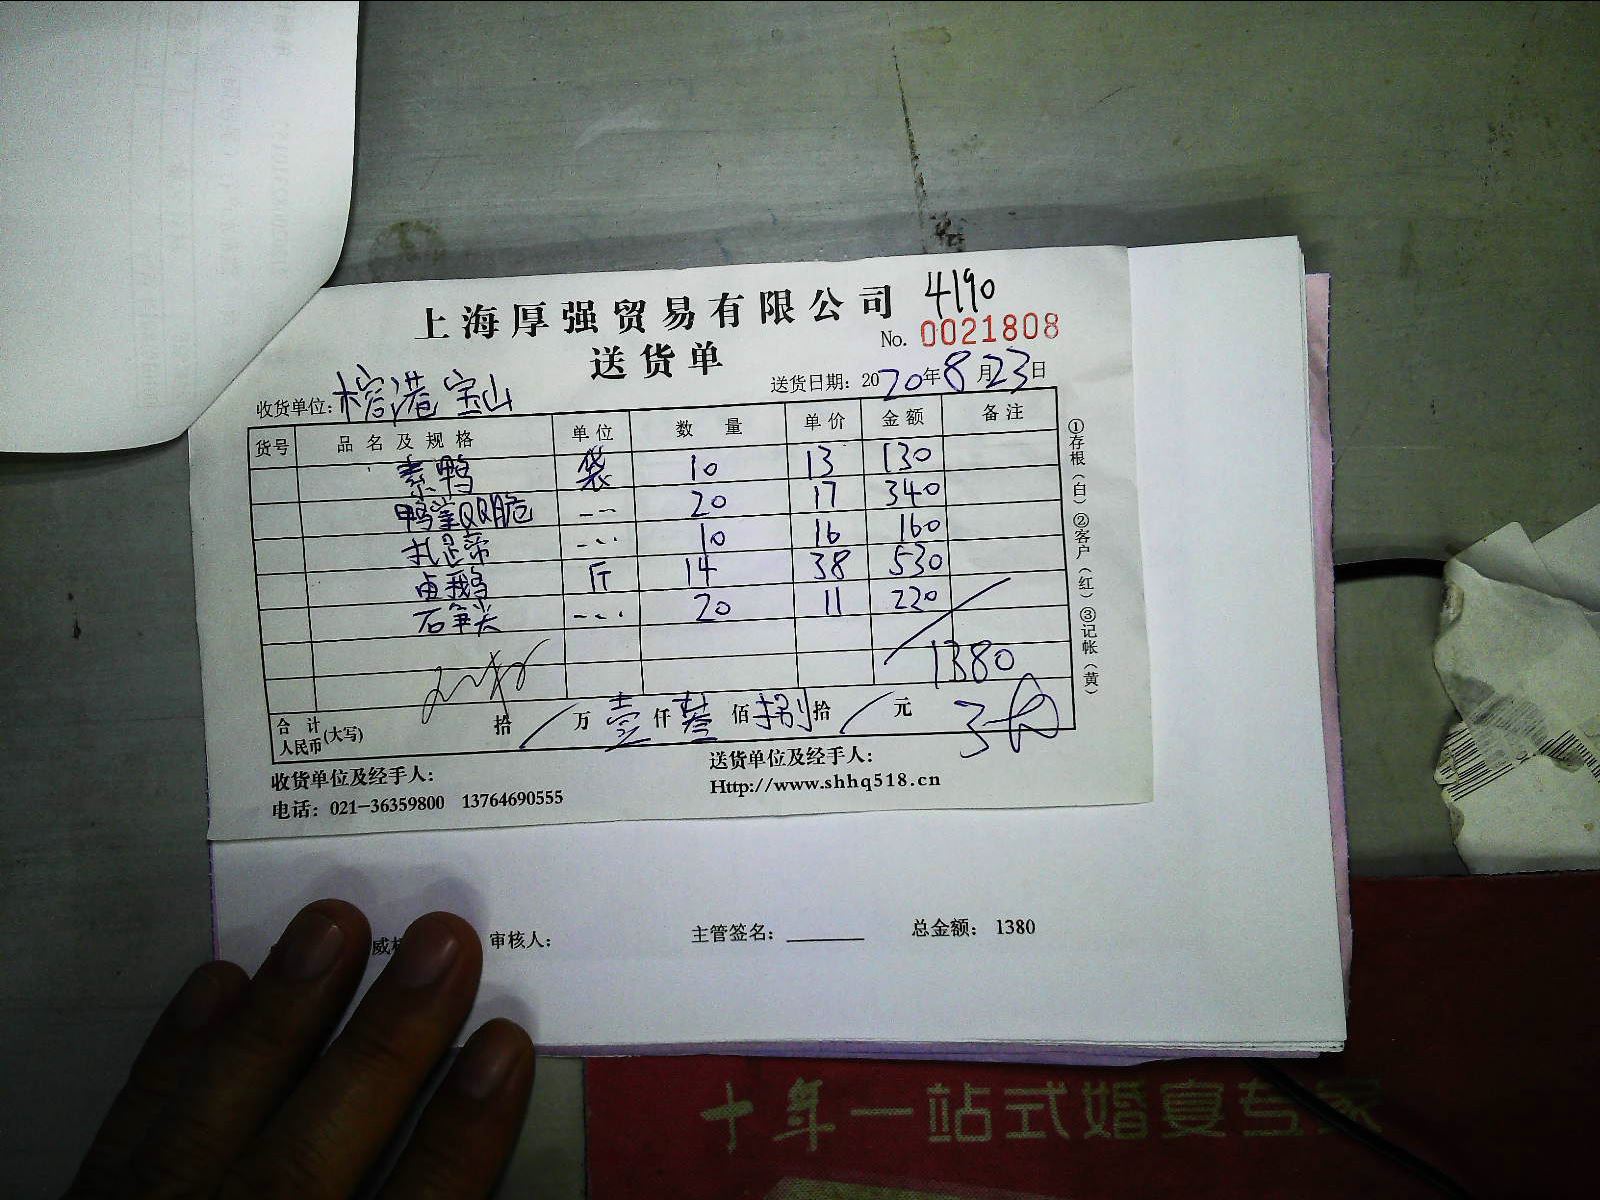 上海厚强贸易有限公司 4190
No. 0021808
送货单
收货单位：榕港宝山 送货日期：2020年8月23日
货号 品名及规格 单位 数量 单价 金额 备注
素鸭 袋 10 13 130
鸭掌QQ脆 -- 20 17 340
扎足蹄 --- 10 16 160
卤鹅 斤 14 38 530
石笋尖 --- 20 11 220
1380
合计人民币(大写) 拾 / 万 壹 仟 叁 佰 捌 拾 / 元
收货单位及经手人： 送货单位及经手人：
电话：021-36359800 13764690555 Http://www.shhq518.cn
①存根（白）②客户（红）③记帐（黄）
审核人： 主管签名：________ 总金额： 1380
十年一站式婚宴专家